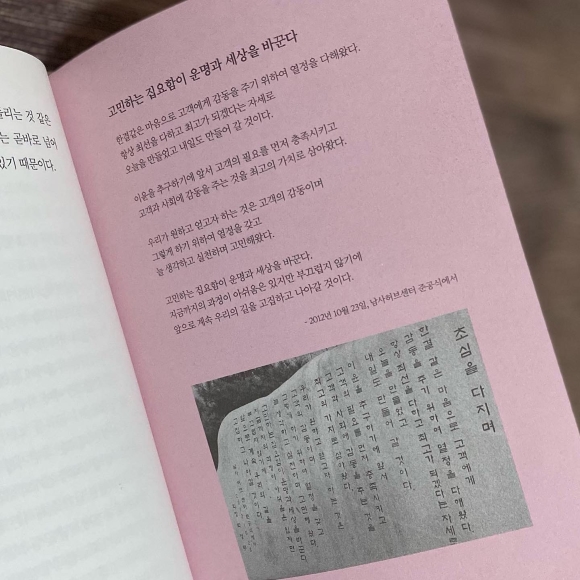 들리는 것 같은
는 곧바로 넘어
있기 때문이다.
고민하는 집요함이 운명과 세상을 바꾼다
한결같은 마음으로 고객에게 감동을 주기 위하여 열정을 다해왔다.
항상 최선을 다하고 최고가 되겠다는 자세로
오늘을 만들었고 내일도 만들어 갈 것이다.
이윤을 추구하기에 앞서 고객의 필요를 먼저 충족시키고
고객과 사회에 감동을 주는 것을 최고의 가치로 삼아왔다.
우리가 원하고 얻고자 하는 것은 고객의 감동이며
그렇게 하기 위하여 열정을 갖고
늘 생각하고 실천하며 고민해왔다.
고민하는 집요함이 운명과 세상을 바꾼다.
지금까지의 과정이 아쉬움은 있지만 부끄럽지 않기에
앞으로 계속 우리의 길을 고집하고 나아갈 것이다.
- 2012년 10월 23일, 남사허브센터 준공식에서
초심을 다지며
한결 같은 마음으로 고객에게
감동을 주기 위하여 열정을 다해왔다.
항상 최선을 다하고 최고가 되겠다는 자세로
오늘을 만들었고
내일도 만들어 갈 것이다.
이윤을 추구하기에 앞서
고객의 필요를 먼저 충족시키고
고객과 사회에 감동을 주는 것을
최고의 가치로 삼아왔다.